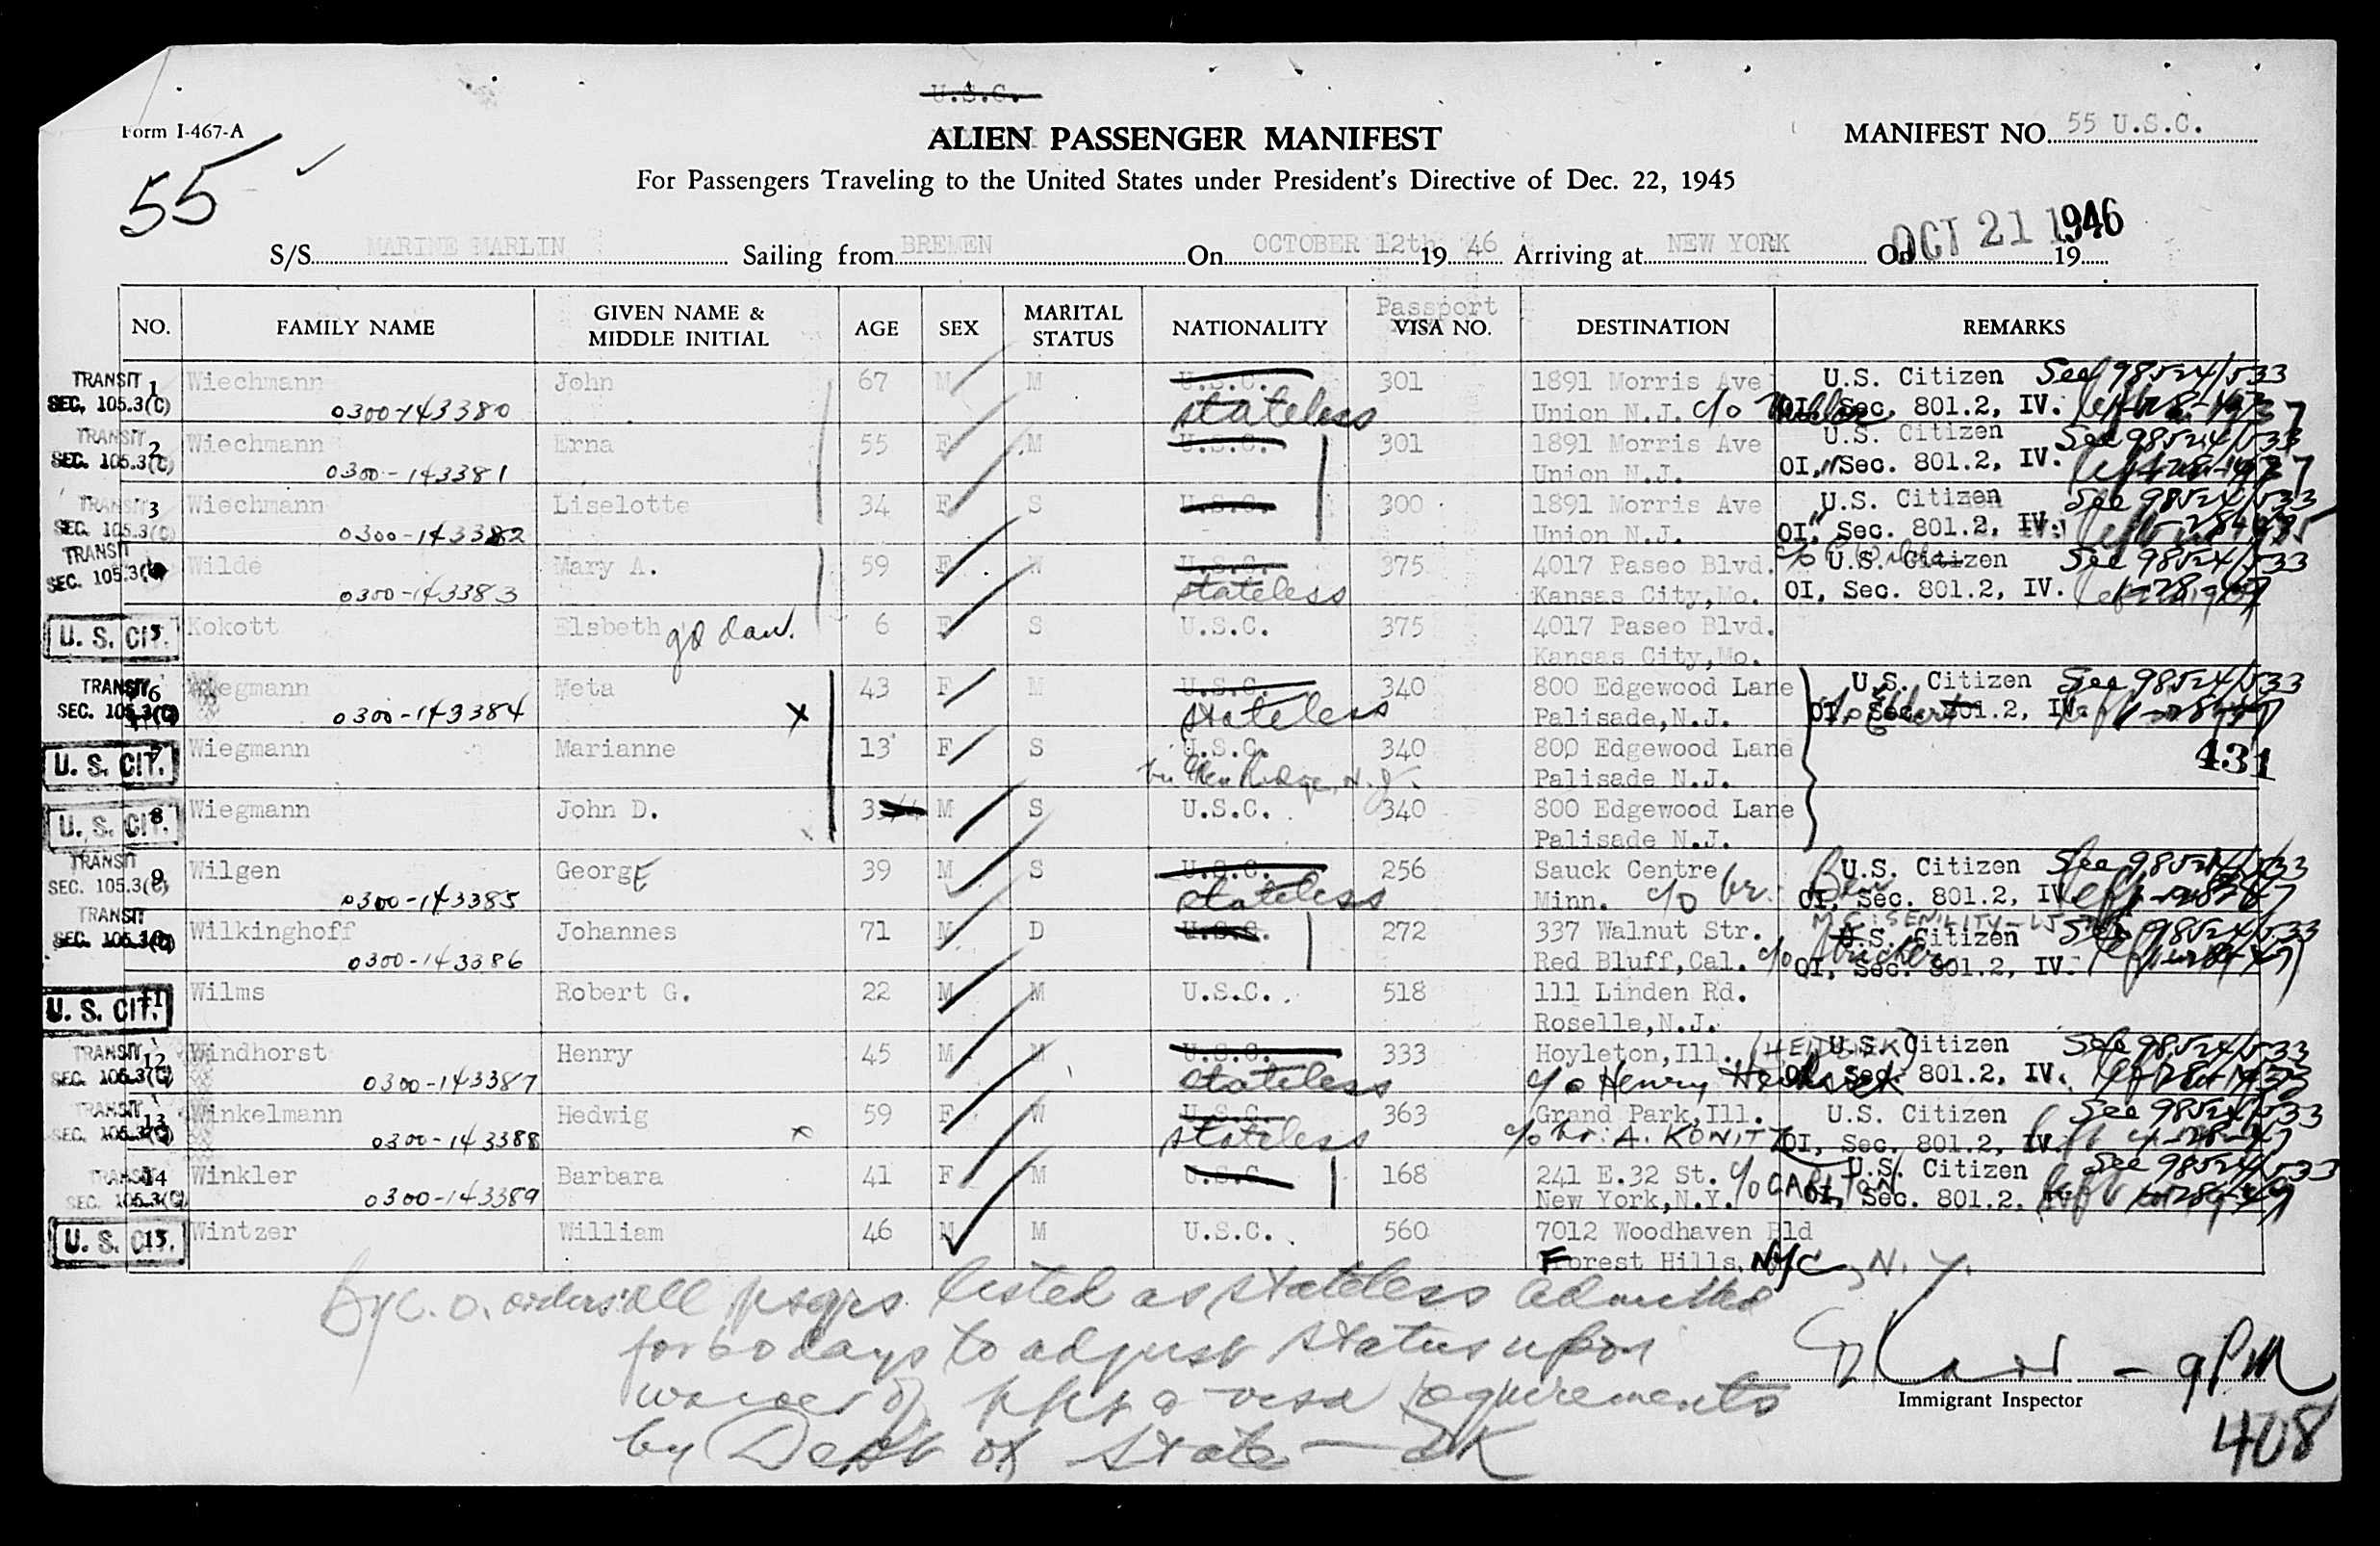 U.S.C.
Form I-467-A
ALIEN PASSENGER MANIFEST
MANIFEST NO. 55 U.S.C.
55
For Passengers Traveling to the United States under President's Directive of Dec. 22, 1945
S/S MARINE MARLIN Sailing from BREMEN On OCTOBER 12th 19 46 Arriving at NEW YORK On OCT 21 1946 19
NO. FAMILY NAME GIVEN NAME & MIDDLE INITIAL AGE SEX MARITAL STATUS NATIONALITY Passport VISA NO. DESTINATION REMARKS
TRANSIT 1 Wiechmann John 67 M M U.S.C. 301 1891 Morris Ave U.S. Citizen See 98524/533
SEC. 105.3(C) 0300-143380 stateless Union N.J. c/o OI, Sec. 801.2, IV. left
TRANSIT 2 Wiechmann Erna 55 F M U.S.C. 301 1891 Morris Ave U.S. Citizen See 98524/533
SEC. 105.3(C) 0300-143381 Union N.J. OI, Sec. 801.2, IV. left
TRANSIT 3 Wiechmann Liselotte 34 F S U.S.C. 300 1891 Morris Ave U.S. Citizen See 98524/533
SEC. 105.3(C) 0300-143382 Union N.J. OI, Sec. 801.2, IV. left
TRANSIT Wilde Mary A. 59 F W U.S.C. 375 4017 Paseo Blvd. c/o U.S. Citizen See 98524/533
SEC. 105.3(C) 0300-143383 stateless Kansas City, Mo. OI, Sec. 801.2, IV. left
U. S. CIT. 5 Kokott Elsbeth gd dau. 6 F S U.S.C. 375 4017 Paseo Blvd.
Kansas City, Mo.
TRANSIT 6 Wiegmann Meta 43 F M U.S.C. 340 800 Edgewood Lane U.S. Citizen See 98524/533
SEC. 105.3(C) 0300-143384 X stateless Palisade, N.J. OI, Sec. 801.2, IV. left
U. S. CIT. 7 Wiegmann Marianne 13 F S U.S.C. 340 800 Edgewood Lane 431
Glen Ridge, N.J. Palisade N.J.
U. S. CIT. 8 Wiegmann John D. 3 M S U.S.C. 340 800 Edgewood Lane
Palisade N.J.
TRANSIT 9 Wilgen George 39 M S U.S.C. 256 Sauck Centre U.S. Citizen See 98524/533
SEC. 105.3(C) 0300-143385 stateless Minn. c/o br: Ben OI, Sec. 801.2, IV. left
TRANSIT 10 Wilkinghoff Johannes 71 M D U.S.C. 272 337 Walnut Str. MC: SENILITY U.S. Citizen See 98524/533
SEC. 105.3(C) 0300-143386 Red Bluff, Cal. c/o OI, Sec. 801.2, IV. left
U. S. CIT. 11 Wilms Robert G. 22 M M U.S.C. 518 111 Linden Rd.
Roselle, N.J.
TRANSIT 12 Windhorst Henry 45 M M U.S.C. 333 Hoyleton, Ill. U.S. Citizen See 98524/533
SEC. 105.3(C) 0300-143387 stateless c/o Henry OI, Sec. 801.2, IV. left
TRANSIT 13 Winkelmann Hedwig 59 F W U.S.C. 363 Grand Park, Ill. U.S. Citizen See 98524/533
SEC. 105.3(C) 0300-143388 x stateless c/o br: A. KONITZ OI, Sec. 801.2, IV. left
TRANSIT 14 Winkler Barbara 41 F M U.S.C. 168 241 E.32 St. c/o CARLTON U.S. Citizen See 98524/533
SEC. 105.3(C) 0300-143389 New York, N.Y. OI, Sec. 801.2, IV. left
U. S. CIT. 15 Wintzer William 46 M M U.S.C. 560 7012 Woodhaven Bld
Forest Hills, NYC, N.Y.
By C.O. orders all psgrs listed as stateless admitted
for 60 days to adjust status upon
waiver of ppt & visa requirements
by Dept of State — DK
9 PM
Immigrant Inspector
408